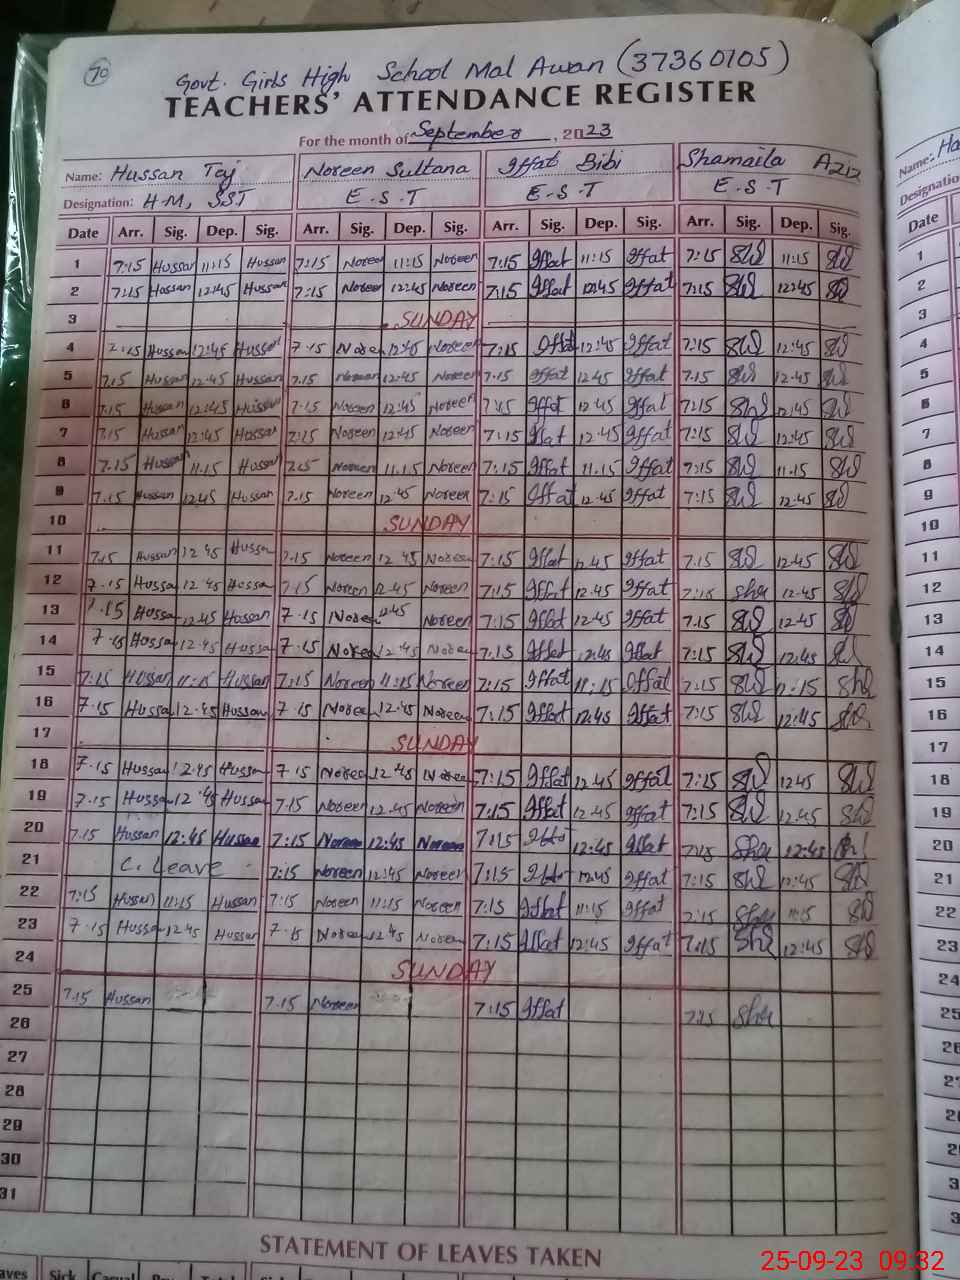 70
Govt. Girls High School Mal Awan (37360105)
TEACHERS' ATTENDANCE REGISTER
For the month of September, 2023
Name: Hussan Taj Noreen Sultana Iffat Bibi Shamaila Aziz
Designation: H.M, SST E.S.T E.S.T E.S.T
Date Arr. Sig. Dep. Sig. Arr. Sig. Dep. Sig. Arr. Sig. Dep. Sig. Arr. Sig. Dep. Sig.
1 7:15 Hussan 11:15 Hussan 7:15 Noreen 11:15 Noreen 7:15 Iffat 11:15 Iffat 7:15 11:15
2 7:15 Hussan 12:45 Hussan 7:15 Noreen 12:45 Noreen 7:15 Iffat 12:45 Iffat 7:15 12:45
3 SUNDAY
4 7:15 Hussan 12:45 Hussan 7.15 Noreen 12:45 Noreen 7:15 Iffat 12:45 Iffat 7:15 12:45
5 7.15 Hussan 12.45 Hussan 7.15 Noreen 12.45 Noreen 7.15 Iffat 12.45 Iffat 7.15 12.45
6 7.15 Hussan 12:45 Hussan 7.15 Noreen 12:45 Noreen 7:15 Iffat 12.45 Iffat 7:15 12:45
7 7.15 Hussan 12:45 Hussan 7:15 Noreen 12:45 Noreen 7:15 Iffat 12.45 Iffat 7:15 12:45
8 7.15 Hussan 11.15 Hussan 7.15 Noreen 11.15 Noreen 7:15 Iffat 11.15 Iffat 7:15 11.15
9 7.15 Hussan 12.45 Hussan 7.15 Noreen 12.45 Noreen 7:15 Iffat 12.45 Iffat 7:15 12:45
10 SUNDAY
11 7.15 Hussan 12.45 Hussan 7.15 Noreen 12.45 Noreen 7:15 Iffat 12.45 Iffat 7.15 12.45
12 7.15 Hussan 12.45 Hussan 7.15 Noreen 12.45 Noreen 7:15 Iffat 12.45 Iffat 7:15 Sha 12.45
13 7.15 Hussan 12.45 Hussan 7.15 Noreen 12.45 Noreen 7:15 Iffat 12:45 Iffat 7.15 12.45
14 7.15 Hussan 12:45 Hussan 7.15 Noreen 12.45 Noreen 7.15 Iffat 12:45 Iffat 7:15 12:45
15 7:15 Hussan 11:15 Hussan 7:15 Noreen 11:15 Noreen 7:15 Iffat 11:15 Iffat 7:15 11:15
16 7.15 Hussan 12.45 Hussan 7.15 Noreen 12.45 Noreen 7:15 Iffat 12:45 Iffat 7:15 12:45
17 SUNDAY
18 7.15 Hussan 12.45 Hussan 7.15 Noreen 12.45 Noreen 7:15 Iffat 12.45 Iffat 7:15 12:45
19 7.15 Hussan 12.45 Hussan 7.15 Noreen 12.45 Noreen 7:15 Iffat 12:45 Iffat 7:15 12:45
20 7:15 Hussan 12:45 Hussan 7:15 Noreen 12:45 Noreen 7:15 Iffat 12:45 Iffat 7:15 Sha 12:45
21 C. Leave 7:15 Noreen 12:45 Noreen 7:15 Iffat 12:45 Iffat 7:15 12:45
22 7:15 Hussan 11:15 Hussan 7:15 Noreen 11:15 Noreen 7:15 Iffat 11:15 Iffat 7:15 11:15
23 7.15 Hussan 12.45 Hussan 7.15 Noreen 12.45 Noreen 7:15 Iffat 12:45 Iffat 7:15 12:45
24 SUNDAY
25 7.15 Hussan 7.15 Noreen 7:15 Iffat 7:15 Sha
26
27
28
29
30
31
STATEMENT OF LEAVES TAKEN
Sick Casual
25-09-23 09:32